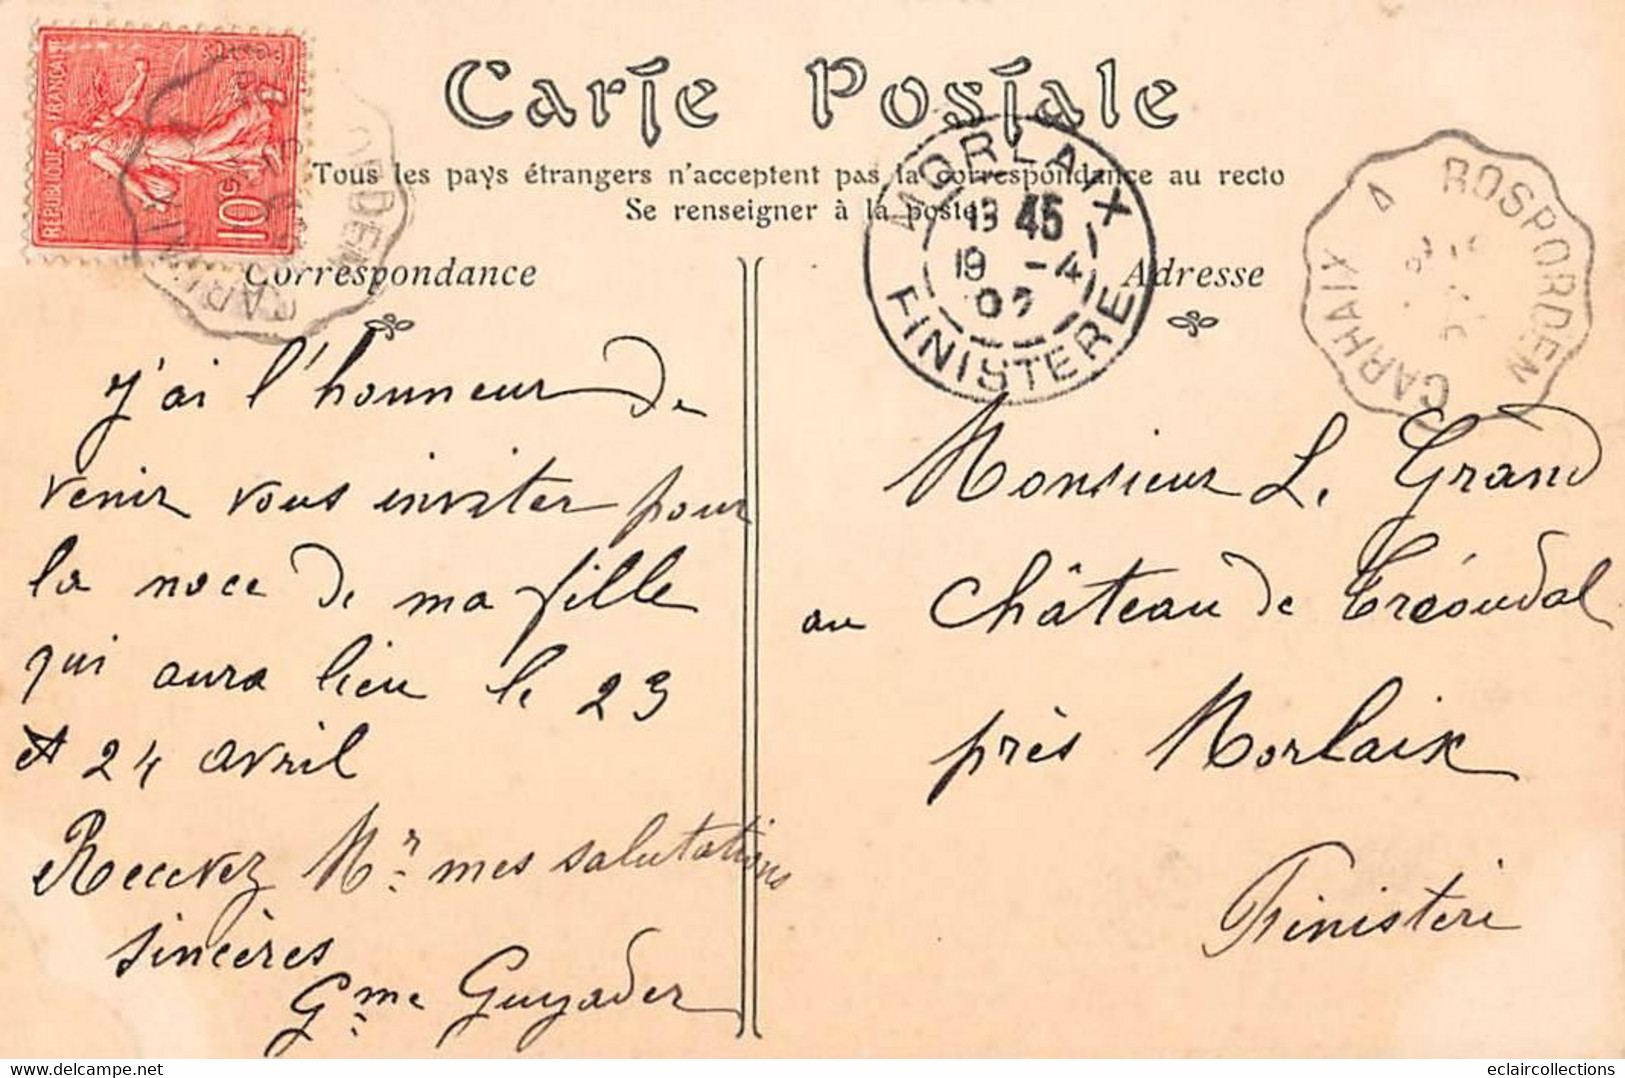 RÉPUBLIQUE FRANÇAISE
POSTES
10c
Carte Postale
Tous les pays étrangers n'acceptent pas la correspondance au recto
Se renseigner à la poste
Correspondance
Adresse
MORLAIX
13 45
19 -4
07
FINISTERE
CARHAIX A ROSPORDEN
j'ai l'honneur de
venir vous inviter pour
la noce de ma fille
qui aura lieu le 23
et 24 avril
Recevez Mr mes salutations
sincères
Gme Guyader
Monsieur Le Grand
au Château de Tréoudal
près Morlaix
Finistère
eclaircollections